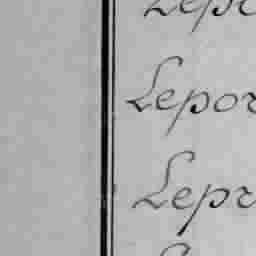 Lepo
Lepor
Lepr